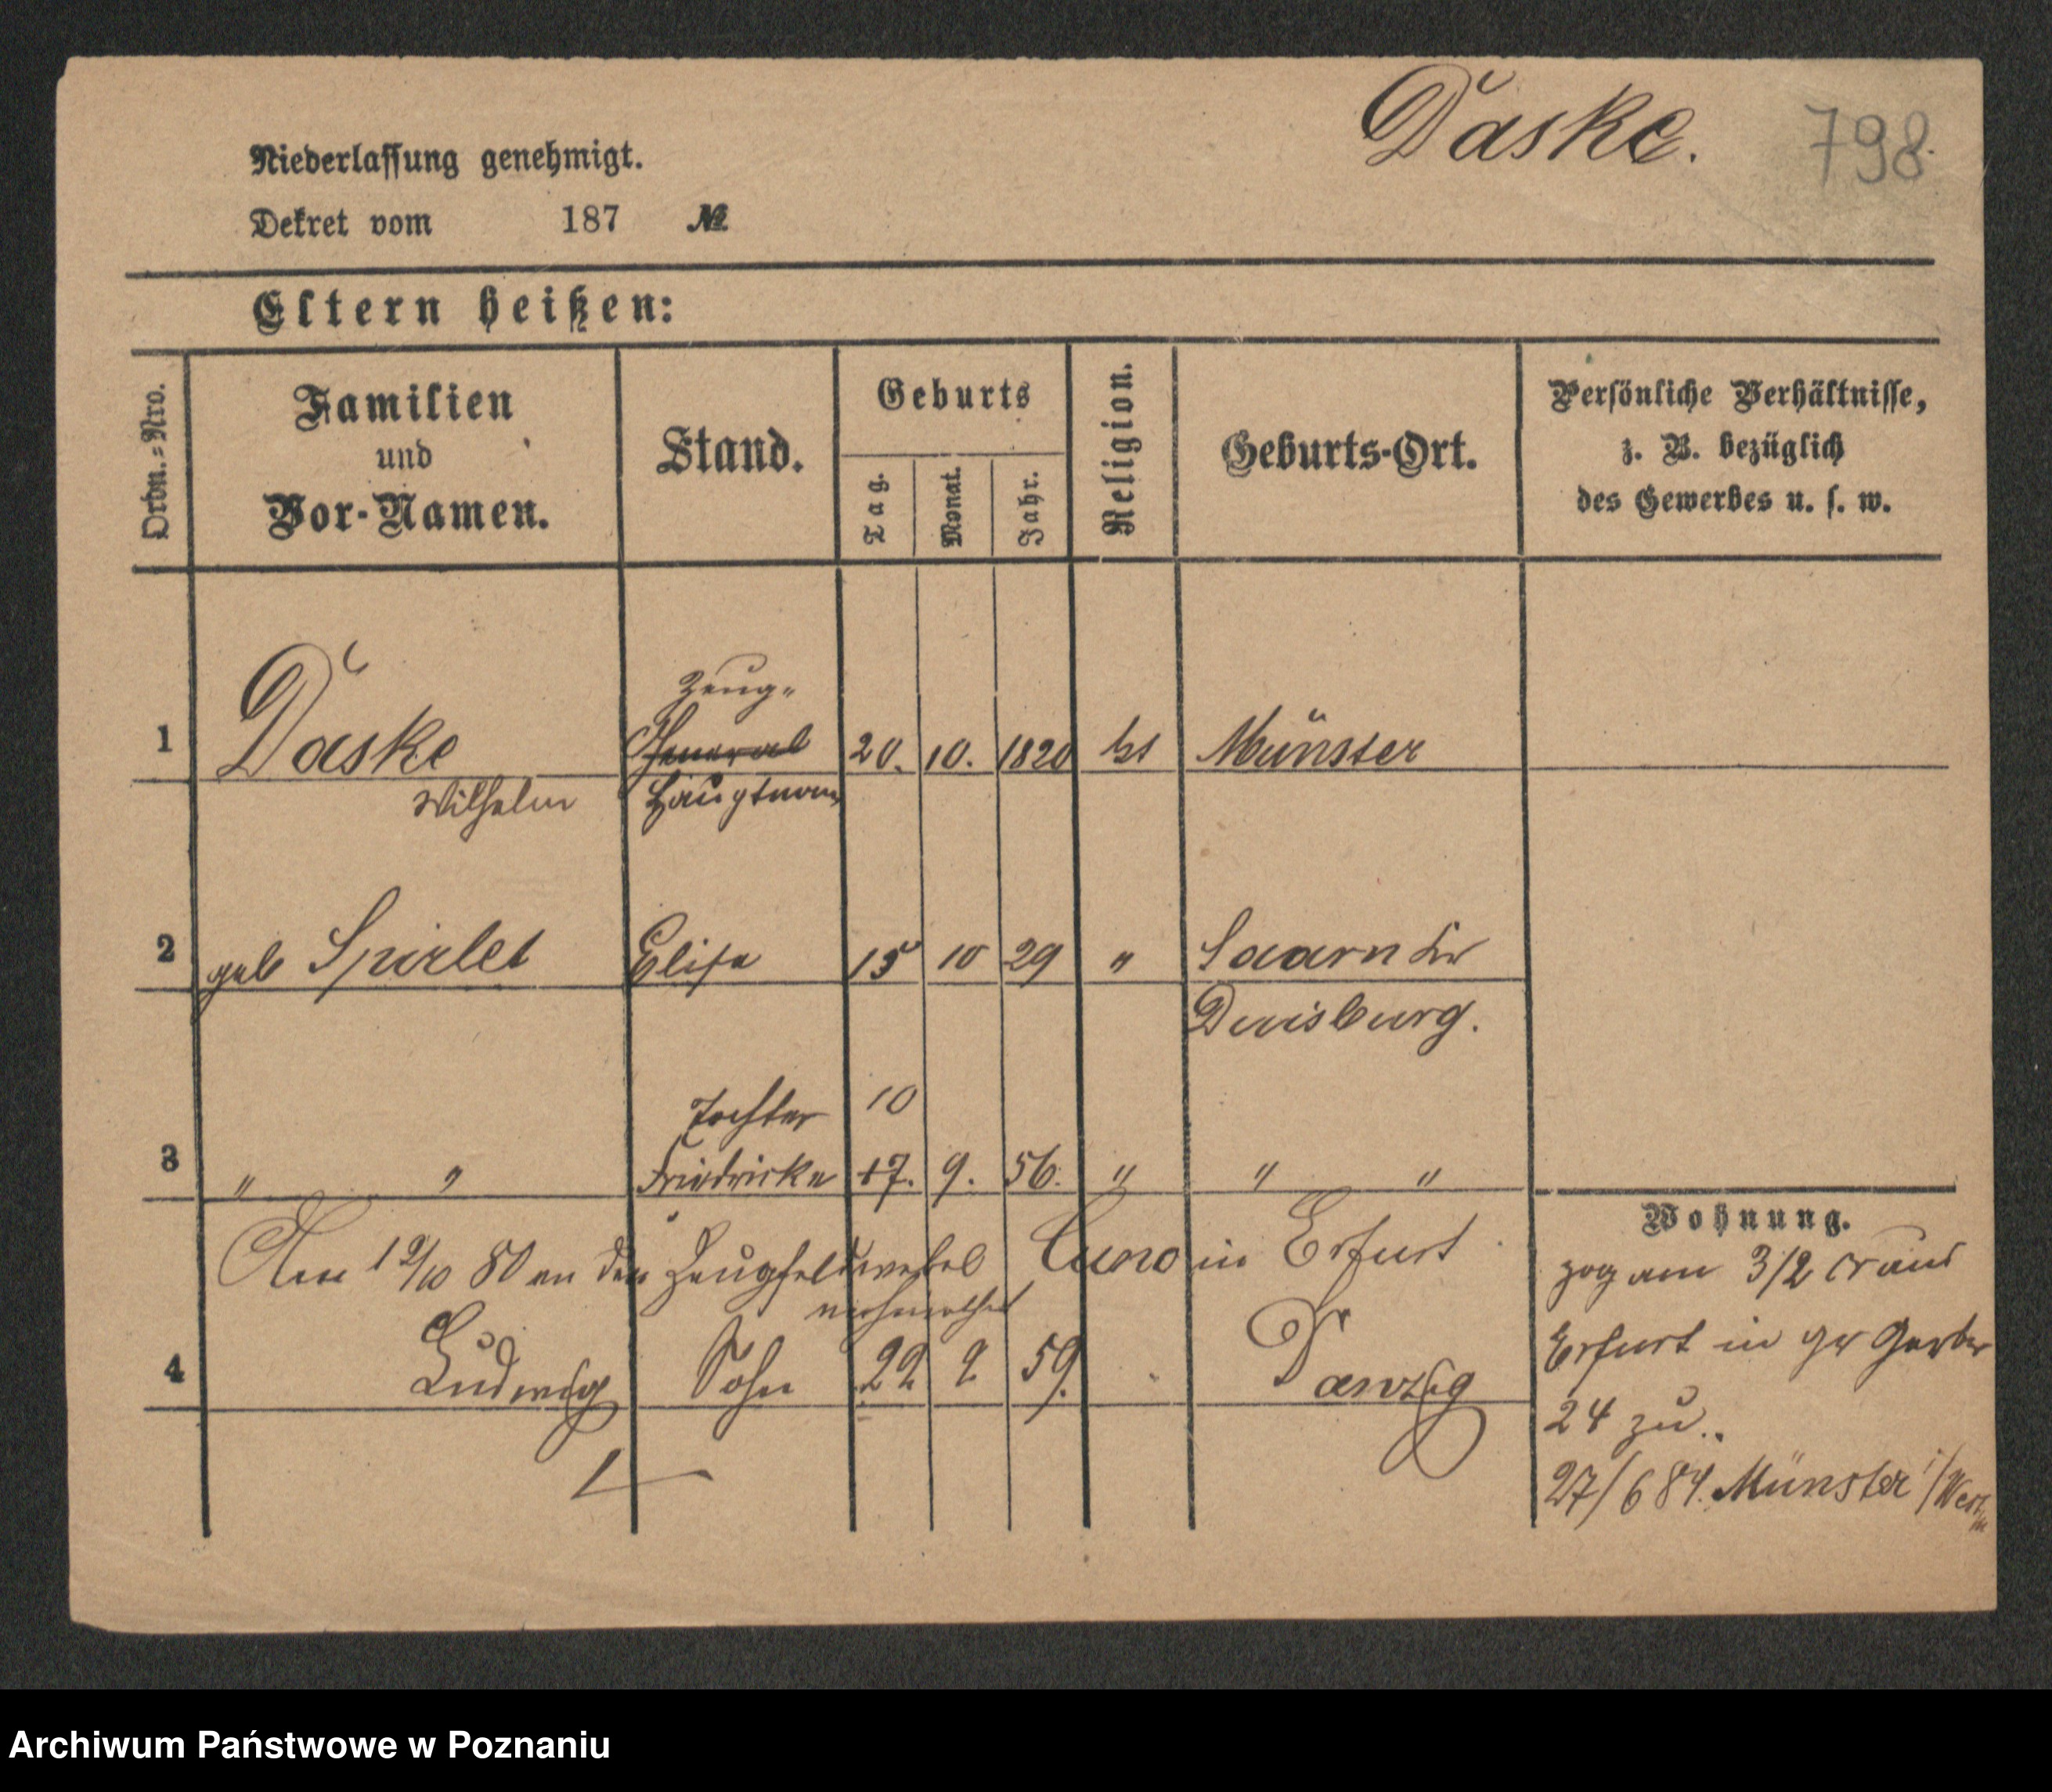 Daske. 798.
Niederlassung genehmigt.
Dekret vom 187 №
Eltern heißen:
Ordn.-Nro.
Familien
und
Vor-Namen.
Stand.
Geburts
Tag.
Monat.
Jahr.
Religion.
Geburts-Ort.
Persönliche Verhältnisse,
z. B. bezüglich
des Gewerbes u. s. w.
Zeug-
1 Daske General 20. 10. 1820 Münster
Wilhelm Hauptmann
2 geb Spirlet Elise 15 10 29 " Saarn
Duisburg.
Tochter 10
3 " " Friedricke 17. 9. 56. " " "
Wohnung.
Am 19/10 80 an den Zeugfeldwebel Cuno in Erfurt
verheirathet
4 Ludwig Sohn 22 2 59. Danzig
zog am 3/2 cr aus
Erfurt in gr Gerber
24 zu.
27/6 84. Münster i/Westf
Archiwum Państwowe w Poznaniu